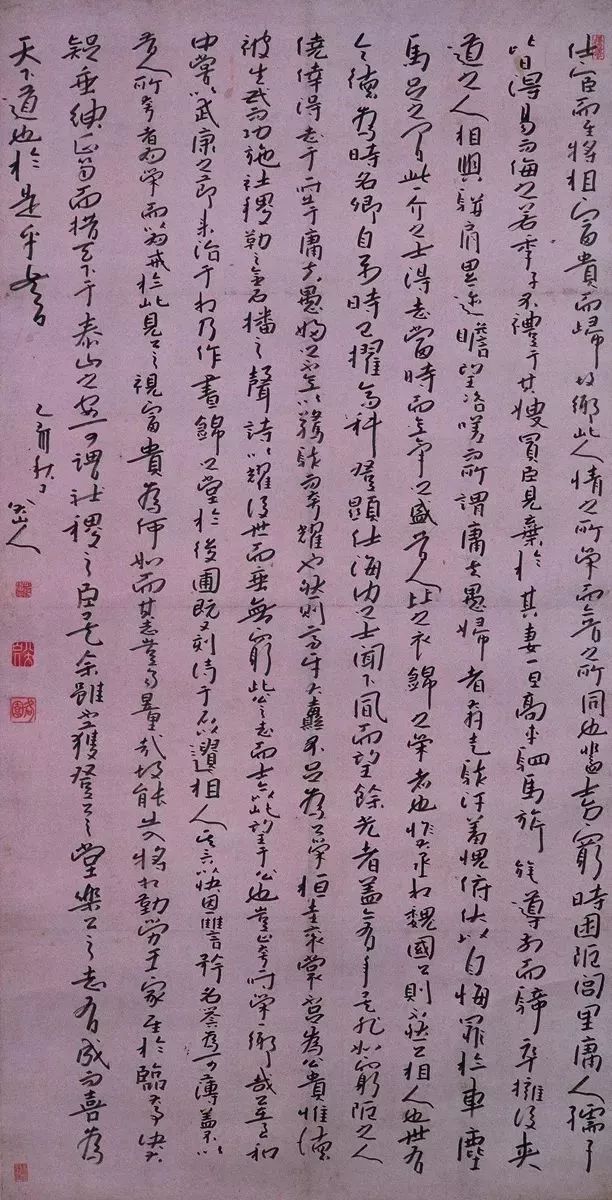 仕宦而至將相富貴而歸故鄉此人情之所榮而今昔之所同也蓋士方窮時困阨閭里庸人孺子
皆得易而侮之若季子不禮于其嫂買臣見棄於其妻一旦高車駟馬旗旄導前而騎卒擁後夾
道之人相與駢肩累迹瞻望咨嗟而所謂庸夫愚婦者奔走駭汗羞愧俯伏以自悔罪於車塵
馬足之間此一介之士得志當時而意氣之盛昔人比之衣錦之榮者也惟大丞相魏國公則不然公相人也世有
令德為時名卿自時已擢高科登顯仕海內之士聞下風而望餘光者蓋亦有年矣非如窮阨之人
僥倖得志于一時庸夫愚婦之不意以驚駭而夸耀也然則高牙大纛不足為公榮桓圭袞裳不足為公貴惟德
被生民而功施社稷勒之金石播之聲詩以耀後世而垂無窮此公之志而士亦以此望于公也豈止夸一時榮一鄉哉公在至和
中嘗以武康之節來治于相乃作晝錦之堂於後圃既又刻詩于石以遺相人其言以快恩讎矜名譽為可薄蓋不以
昔人所夸者為榮而以為戒於此見公之視富貴為何如而其志豈易量哉故能出入將相勤勞王家至於臨大事決大
議垂紳正笏而措天下于泰山之安可謂社稷之臣矣余雖不獲登公之堂樂公之志有成而喜為
天下道也於是乎書
乙亥秋日八大山人